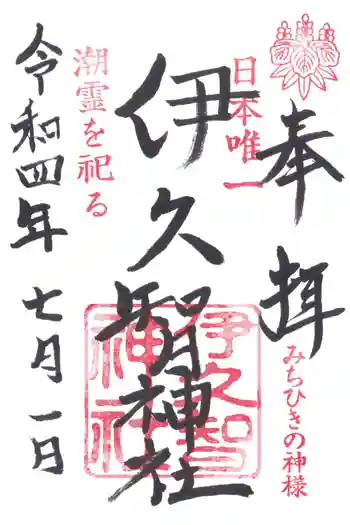 奉拝
みちひきの神様
日本唯一
伊久智神社
伊久智神社
潮霊を祀る
令和四年 七月 一日